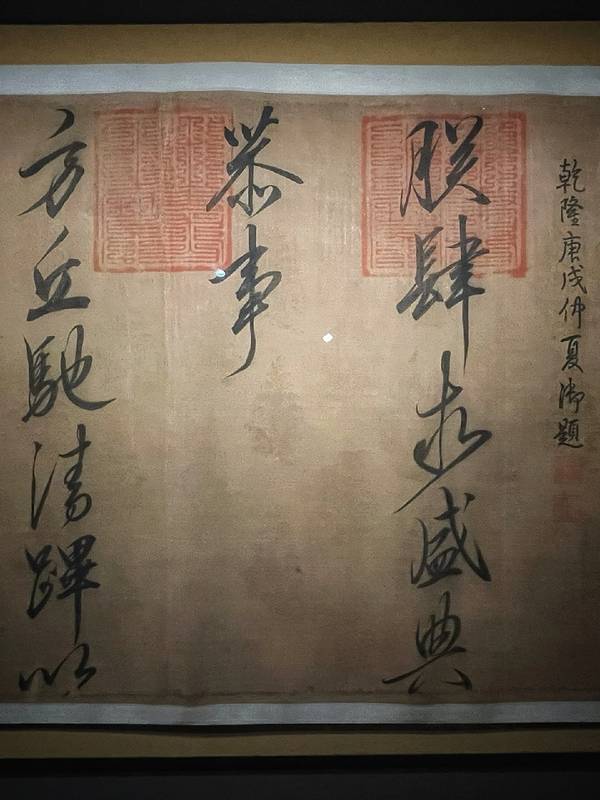 乾隆庚戌仲夏御題
朕肆求盛典
恭事
方丘馳清蹕以